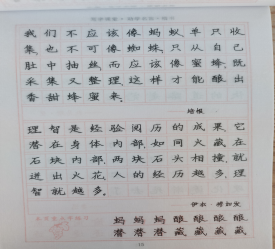 我们不应该像蚂蚁单只收
集也不可像蜘蛛,只从自己
肚中抽丝而应该像蜜蜂,既
采集又整理这样才能酿出
香甜蜂蜜来。
培根
理智是经验阅历的成果,它
潜在身体内部,如同火藏在
石块内部,两块石头相撞,就
迸出火花,人的经历越多,理
智就越多。
蚂 蚂 酿 酿
潜 潜 藏 藏